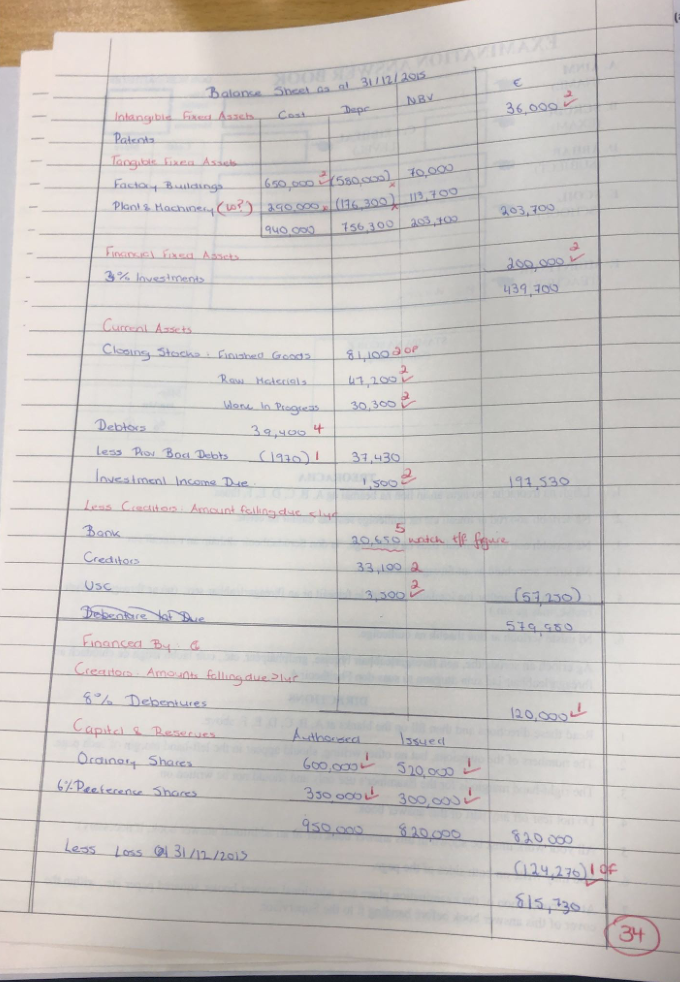 Balance Sheet as at 31/12/2015
Cost Depr NBV €
Intangible Fixed Assets 36,000 2
Patents
Tangible Fixed Assets
Factory Buildings 650,000 2 (580,000) 70,000
Plant & Machinery (WP) 290,000 (176,300) 113,700 203,700
940,000 756,300 203,700
Financial Fixed Assets
3% Investments 200,000 2
439,700
Current Assets
Closing Stocks: Finished Goods 81,100 2 OF
Raw Materials 47,200 2
Work In Progress 30,300 2
Debtors 39,400 4
Less Prov Bad Debts (1970) 1 37,430
Investment Income Due 1,500 2 197,530
Less Creditors: Amount falling due <1yr
Bank 20,650 5 watch figure
Creditors 33,100 2
USC 3,500 2 (57,250)
Debenture Int Due 579,980
Financed By:
Creditors: Amounts falling due >1yr
8% Debentures 120,000 1
Capital & Reserves Authorised Issued
Ordinary Shares 600,000 1 520,000 1
6% Preference Shares 350,000 1 300,000 1
950,000 820,000 820,000
Less Loss @ 31/12/2015 (124,270) 1 OF
815,730
34